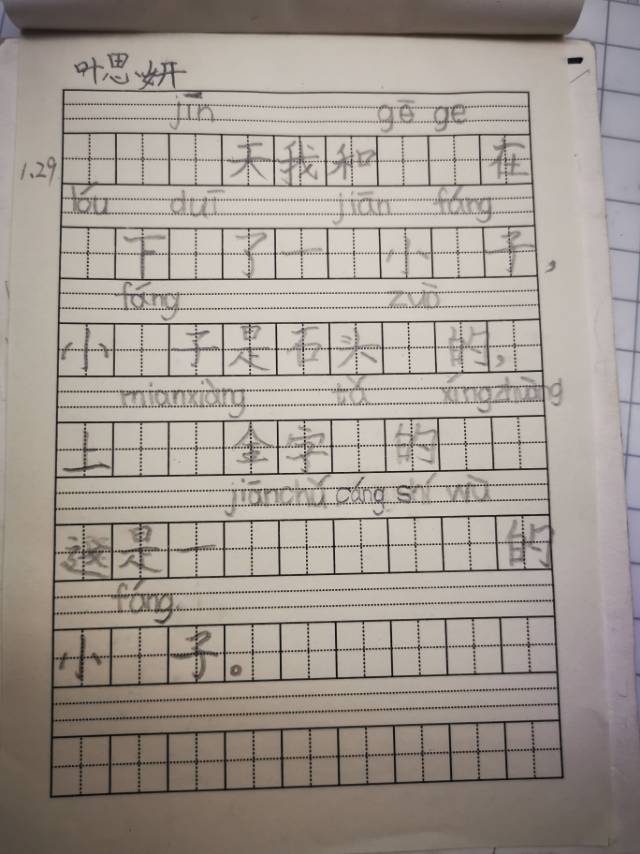 叶思妍
jīn gē ge
1.29. 天我和 在
lóu duī jiān fáng
下 了一 小 子,
fáng zuò
小 子是石头 的,
miànxiàng tǎ xíngzhuàng
上 金字 的
jiànchú cáng shí wù
这是一 的
fáng
小 子。